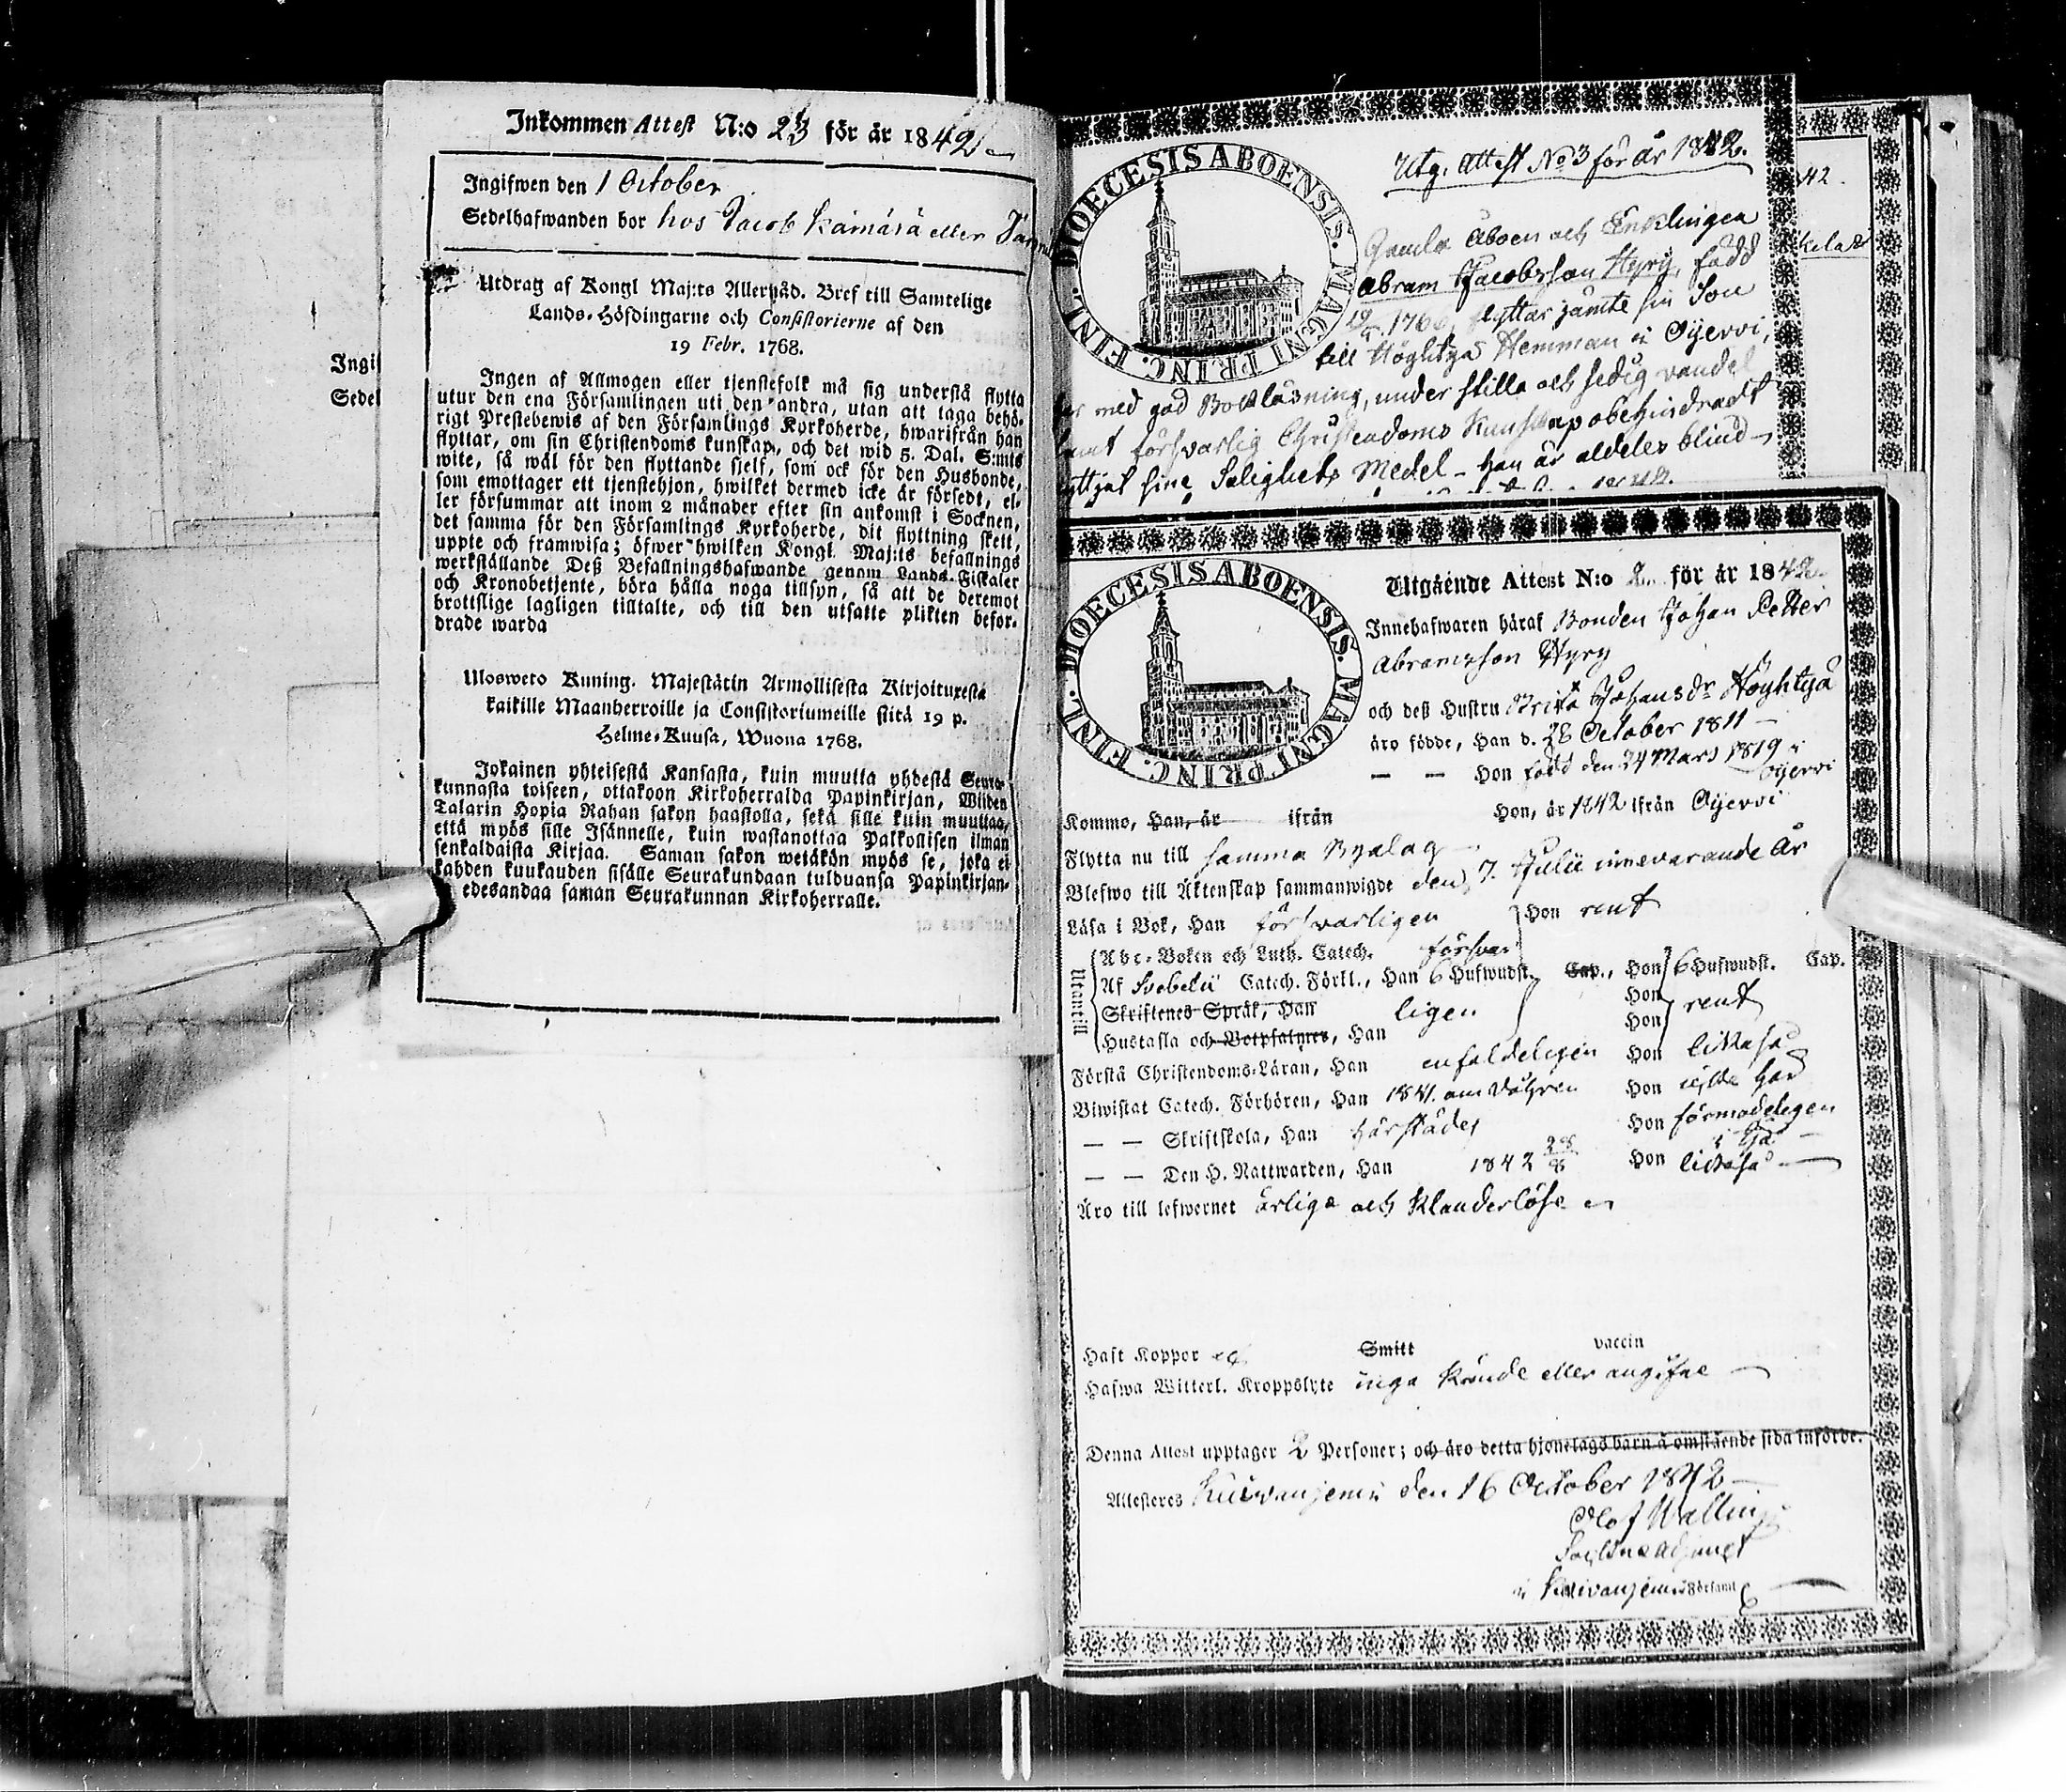 Inkommen Attest N:o 23 för år 1842
Ingifwen den 1 October
Sedelhafwanden bor hos Jacob Kämärä eller
Utdrag af Kongl Maj:ts Allernåd. Bref till Samtelige
Lands-Höfdingarne och Consistorierne af den
19 Febr. 1768.
Ingen af Allmogen eller tjenstefolk må sig understå flytta
utur den ena Församlingen uti den andra, utan att taga behö-
rigt Prestebewis af den Församlings Kyrkoherde, hwarifrån han
flyttar, om sin Christendoms kunskap, och det wid 5. Dal. S:mts
wite, så wäl för den flyttande sielf, som ock för den Husbonde,
som emottager ett tjenstehjon, hwilket dermed icke är försedt, el-
ler försummar att inom 2 månader efter sin ankomst i Socknen,
det samma för den Församlings Kyrkoherde, dit flyttning skett,
uppte och framwisa; öfwer hwilken Kongl. Maj:ts befallnings
werkställande Deß Befallningshafwande genom Lands-Fiskaler
och Kronobetjente, böra hålla noga tillsyn, så att de deremot
brottslige lagligen tilltalte, och till den utsatte plikten befor-
drade warda
Ulosweto Kuning. Majestätin Armollisesta Kirjoituxesta
kaikille Maanherroille ja Consistoriumeille siitä 19 p.
Helme-Kuusa, Wuona 1768.
Jokainen yhteisestä Kansasta, kuin muutta yhdestä Seura-
kunnasta toiseen, ottakoon Kirkoherralda Papinkirjan, Wiiden
Talarin Hopia Rahan sakon haastolla, sekä sille kuin muuttaa,
että myös sille Isännelle, kuin wastanottaa Palkollisen ilman
senkaldaista Kirjaa. Saman sakon wetäkön myös se, joka ei
kahden kuukauden sisälle Seurakundaan tulduansa Papinkirjan-
edesandaa saman Seurakunnan Kirkoherralle.
Ingif
Sedel
DIOECESIS ABOENSIS. MAGNI PRINC. FINL.
Utg. Attest No 3 för år 1842.
Gamla Åboen och Enklingen
Abram Jacobsson Hyry, född
flyttar jämte sin Son
till Höyhtyä Hemman i Oijervi,
med god Bokläsning, under stilla och sedig vandel
samt försvarlig Christendoms Kunskap obehindradt
nyttjat sine Salighets Medel - han är aldeles blind
42.
DIOECESIS ABOENSIS. MAGNI PRINC. FINL.
Utgående Attest N:o 2 för år 1842
Innehafwaren häraf Bonden Johan Petter
Abramsson Hyry
och deß Hustru Brita Johansdr Höyhtyä
äro födde, Han d. 28 October 1811 —
— — Hon född den 24 Mars 1819 i
Oijervi
Kommo, Han, är ifrån Hon, är 1842 ifrån Oijervi
Flytta nu till samma Byalag
Blefwo till Äktenskap sammanwigde den 7. Julii innevarande År
Läsa i Bok, Han försvarligen Hon rent
Utantill
Abc-Boken och Luth. Catech. försvar
Af Svebelii Catech. Förkl., Han 6 Hufwudst. Cap., Hon 6 Hufwudst. Cap.
Skriftenes Språk, Han ligen Hon rent
Hustafla och Botpsalmer, Han Hon
Förstå Christendoms-Läran, Han enfaldeligen Hon likaså
Biwistat Catech. Förhören, Han 1841. om Våhren Hon
— — Skriftskola, Han härstädes Hon förmodeligen
— — Den H. Nattwarden, Han 1842 28/8 Hon likaså —
Äro till lefwernet ärliga och klanderlöse
Haft Koppor Smitt vaccin
Hafwa Witterl. Kroppslyte inga kände eller angifne —
Denna Attest upptager 2 Personer; och äro detta hjonelags barn å omstående sida införde.
Attesteres Kuivaniemi den 16 October 1842 —
Olof Wallin
Sockne Adjunct
i Kuivaniemi Församl